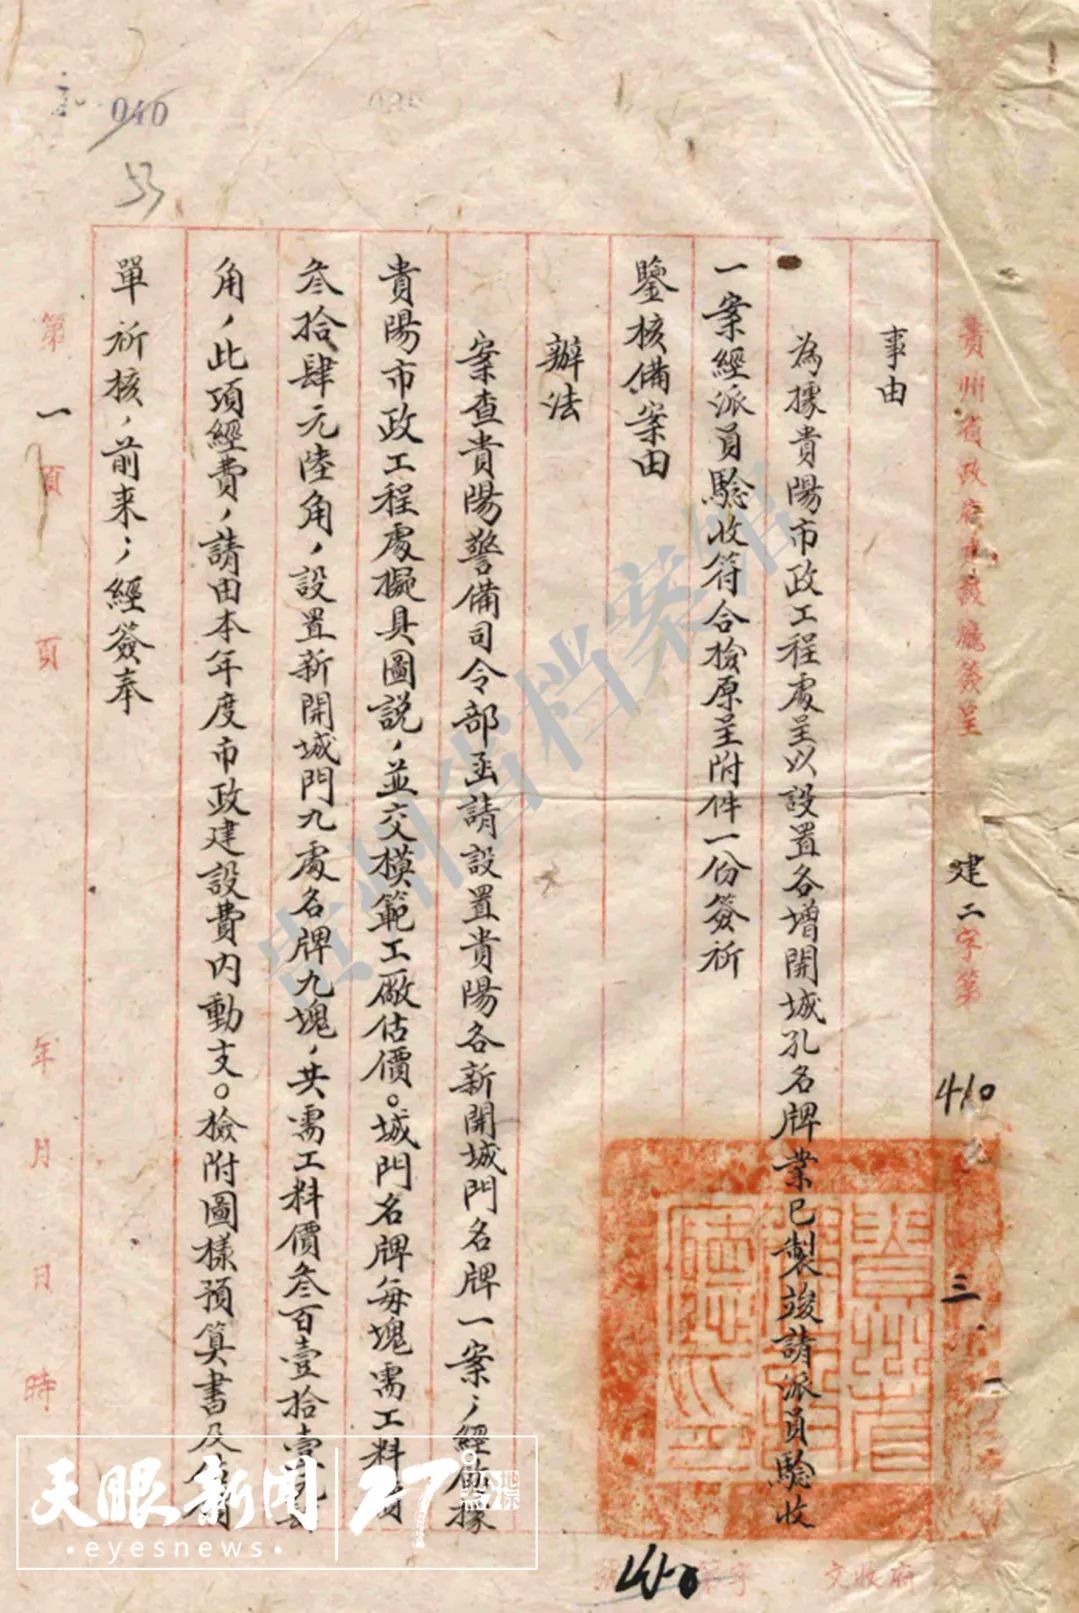 貴州省政府建設廳簽呈
建二字第
410
三
一
事由
為據貴陽市政工程處呈以設置各增開城孔名牌業已製竣請派員驗收
一案經派員驗收符合檢原呈附件一份簽祈
鑒核備案由
辦法
案查貴陽警備司令部函請設置貴陽各新開城門名牌一案；經飭據
貴陽市政工程處擬具圖說，並交模範工廠估價。城門名牌每塊需工料
叁拾肆元陸角，設置新開城門九處名牌九塊，共需工料價叁百壹拾壹元
角，此項經費，請由本年度市政建設費內動支。檢附圖樣預算書及
單祈核，前来；經簽奉
第一頁
頁
年月日時
府收文
字
040
53
贵州省档案馆
天眼新闻
·eyesnews·
27°
地标